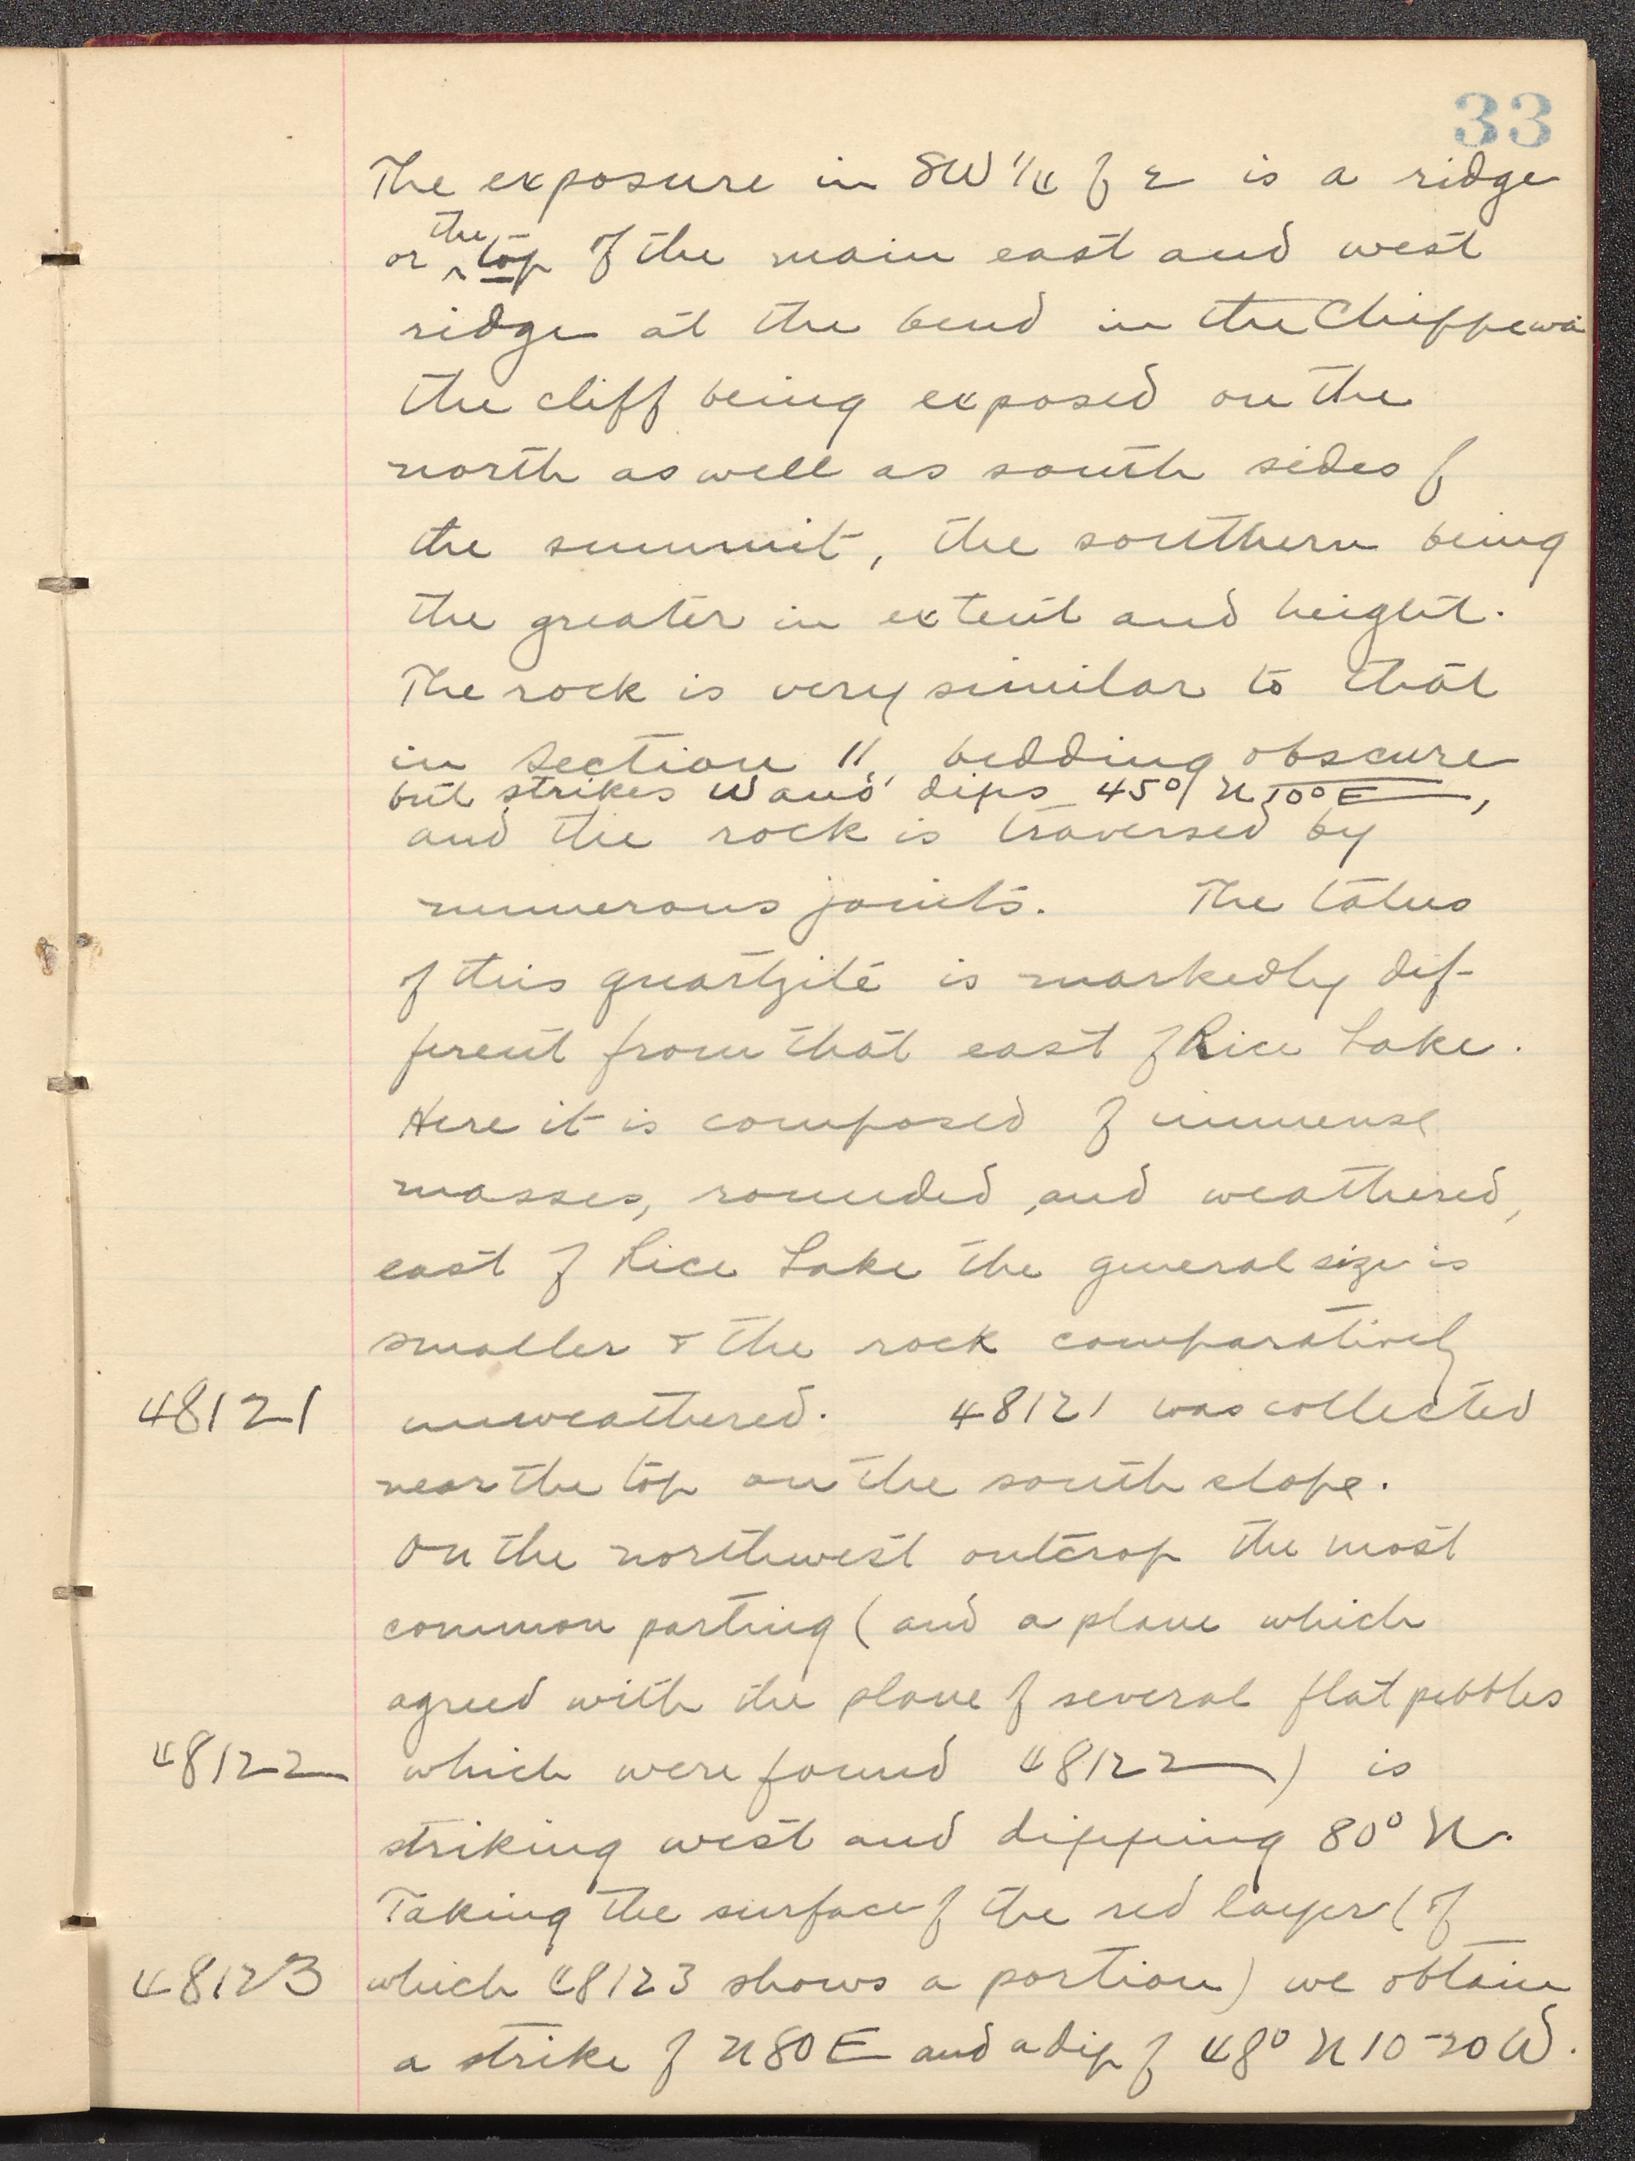 33
The exposure in SW 1/4 of 2 is a ridge
or the top of the main east and west
ridge at the bend in the Chippewa
the cliff being exposed on the
north as well as south sides of
the summit, the southern being
the greater in extent and height.
The rock is very similar to that
in Section 11, bedding obscure
but strikes W and dips 45° N 10° E,
and the rock is traversed by
numerous joints. The talus
of this quartzite is markedly dif-
ferent from that east of Rice Lake.
Here it is composed of immense
masses, rounded, and weathered,
east of Rice Lake the general size is
smaller & the rock comparatively
48121 unweathered. 48121 was collected
near the top on the south slope.
On the northwest outcrop the most
common parting (and a plane which
agreed with the plane of several flat pebbles
48122 which were found 48122) is
striking west and dipping 80° N.
Taking the surface of the red layer (of
48123 which 48123 shows a portion) we obtain
a strike of N 80 E and a dip of 48° N 10-20 W.